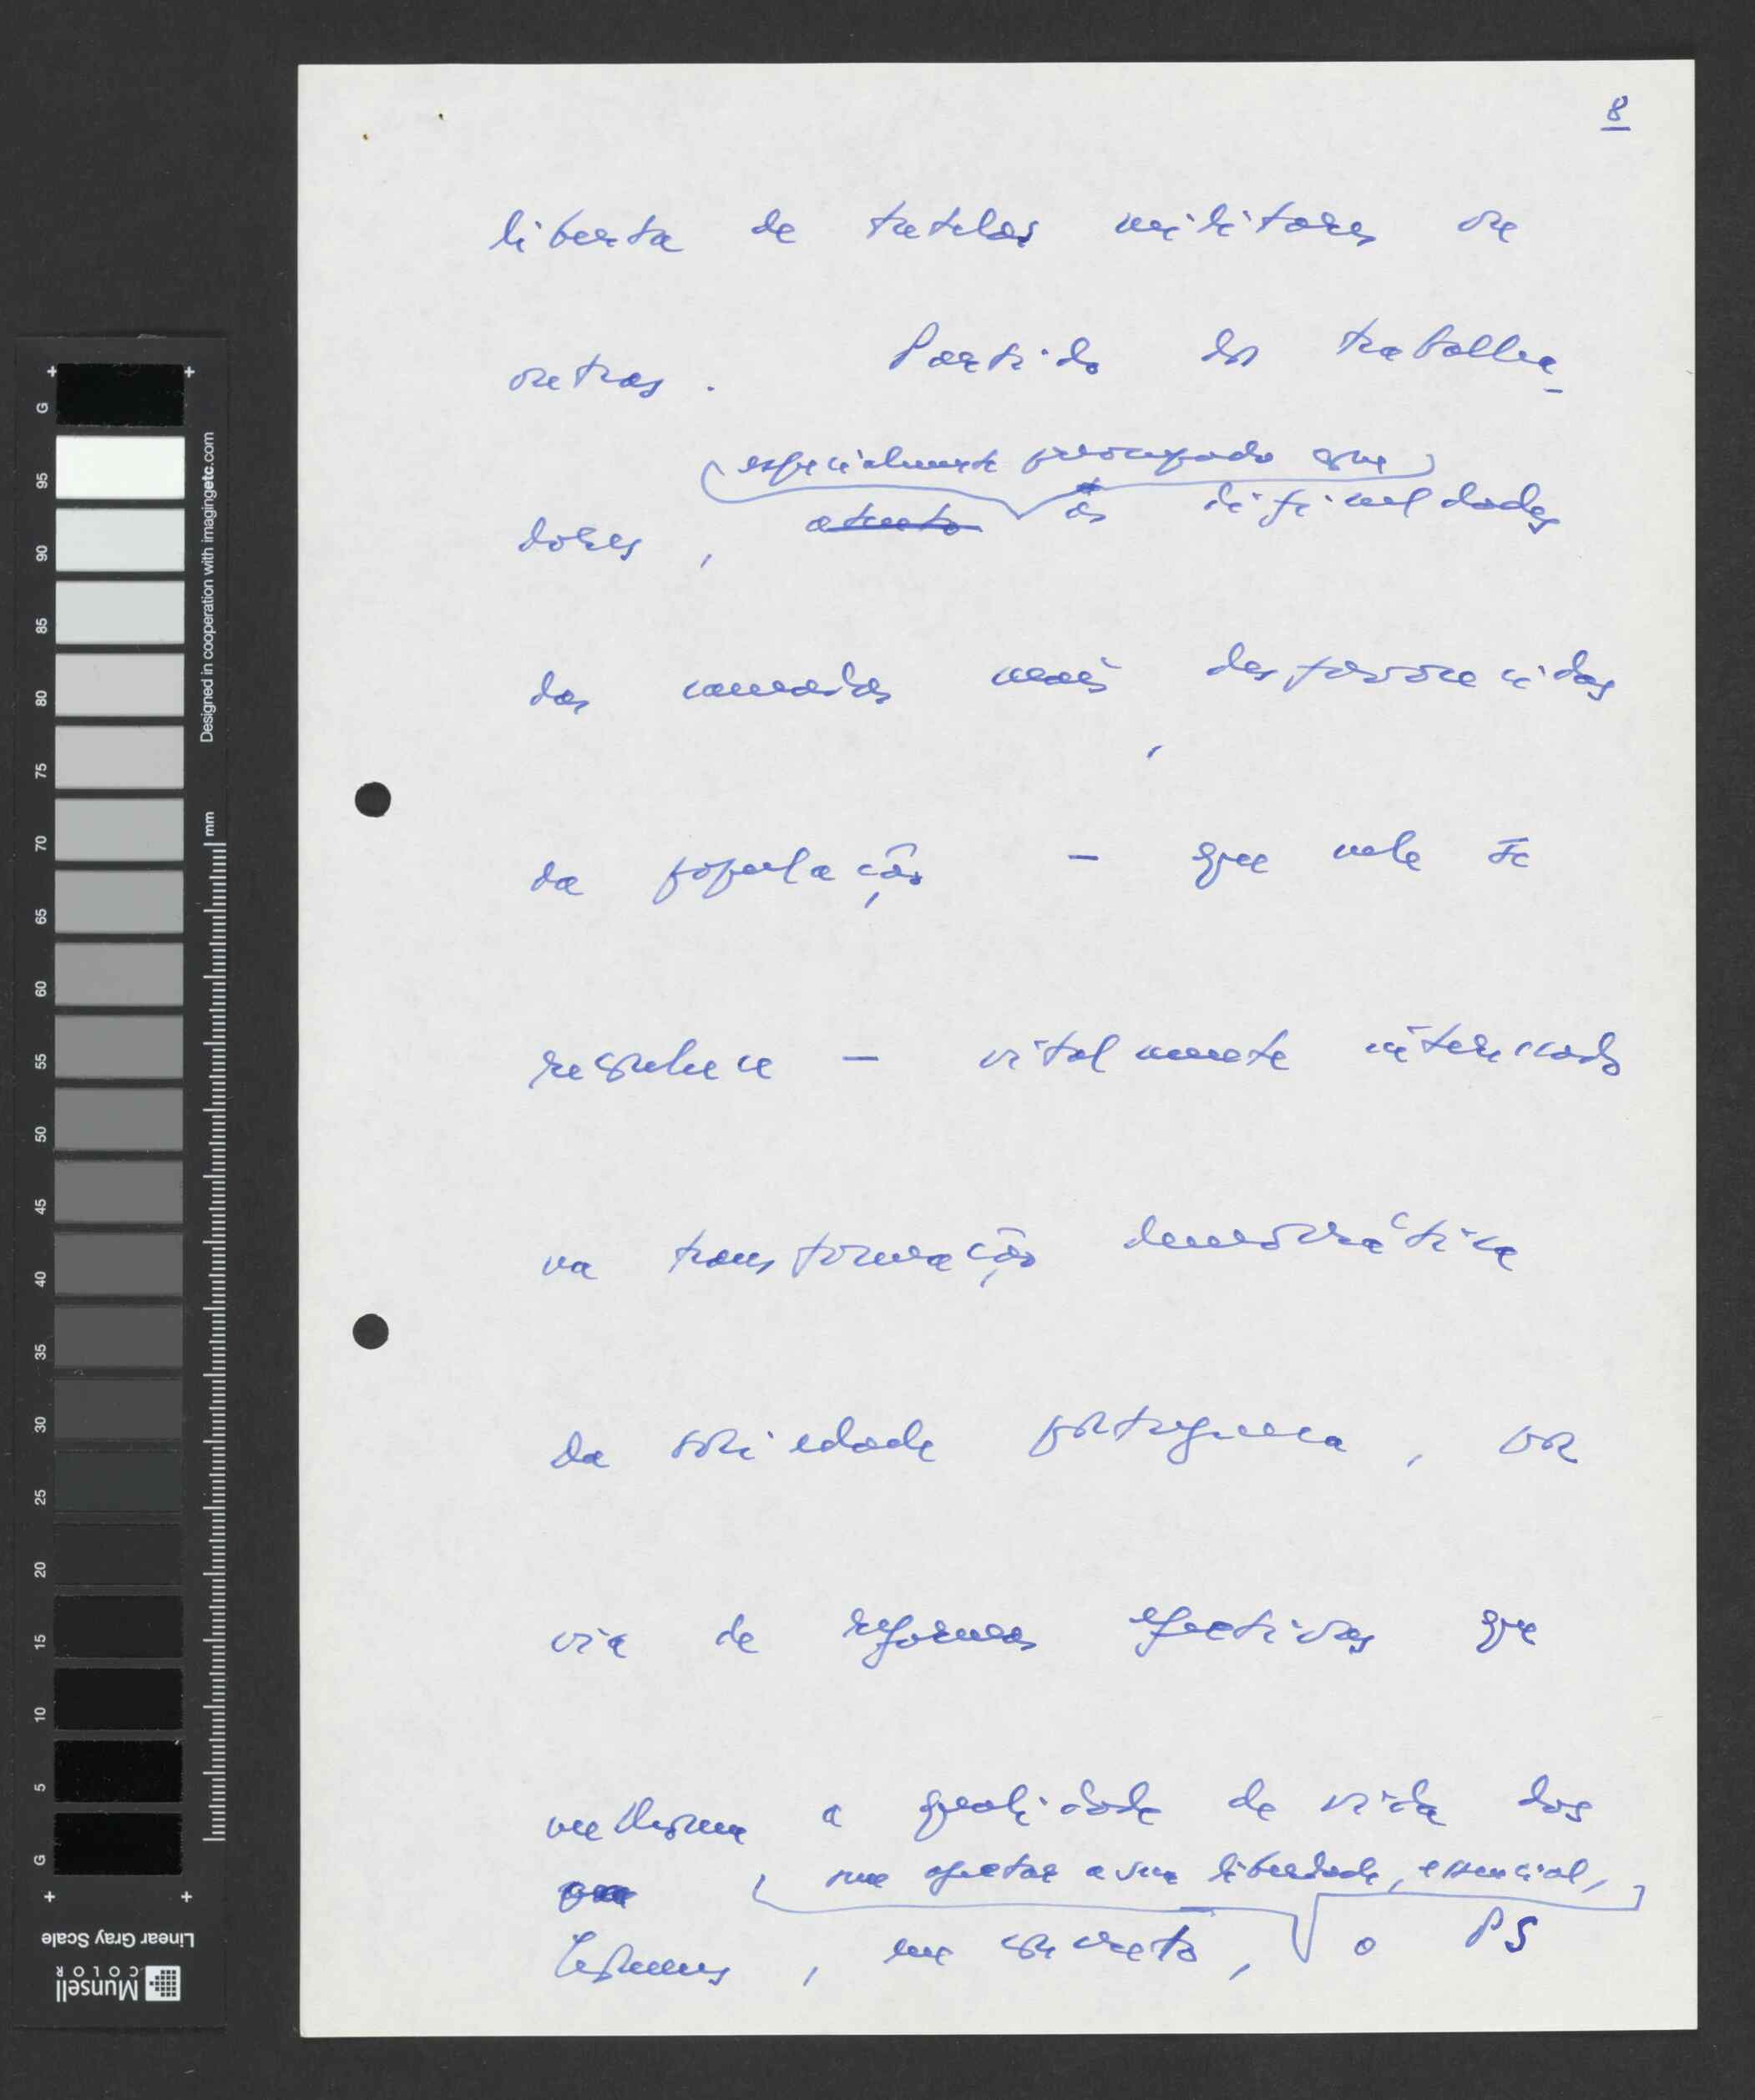 8
liberta de tutelas militares ou
outras. Partido dos trabalha-
especialmente preocupado com
dores, atento as dificuldades
das camadas mais desfavorecidas
da população, – que nele se
reconhece – vitalmente interessado
na transformação democrática
da sociedade portuguesa, por
via de reformas efectivas que
melhorem a qualidade de vida dos
sem afectar a sua liberdade, essencial,
homens, em concreto, o PS
G
95
90
85
80
75
70
65
60
55
50
45
40
35
30
25
20
15
10
5
G
Designed in cooperation with imagingetc.com
mm
Linear Gray Scale
Munsell
COLOR